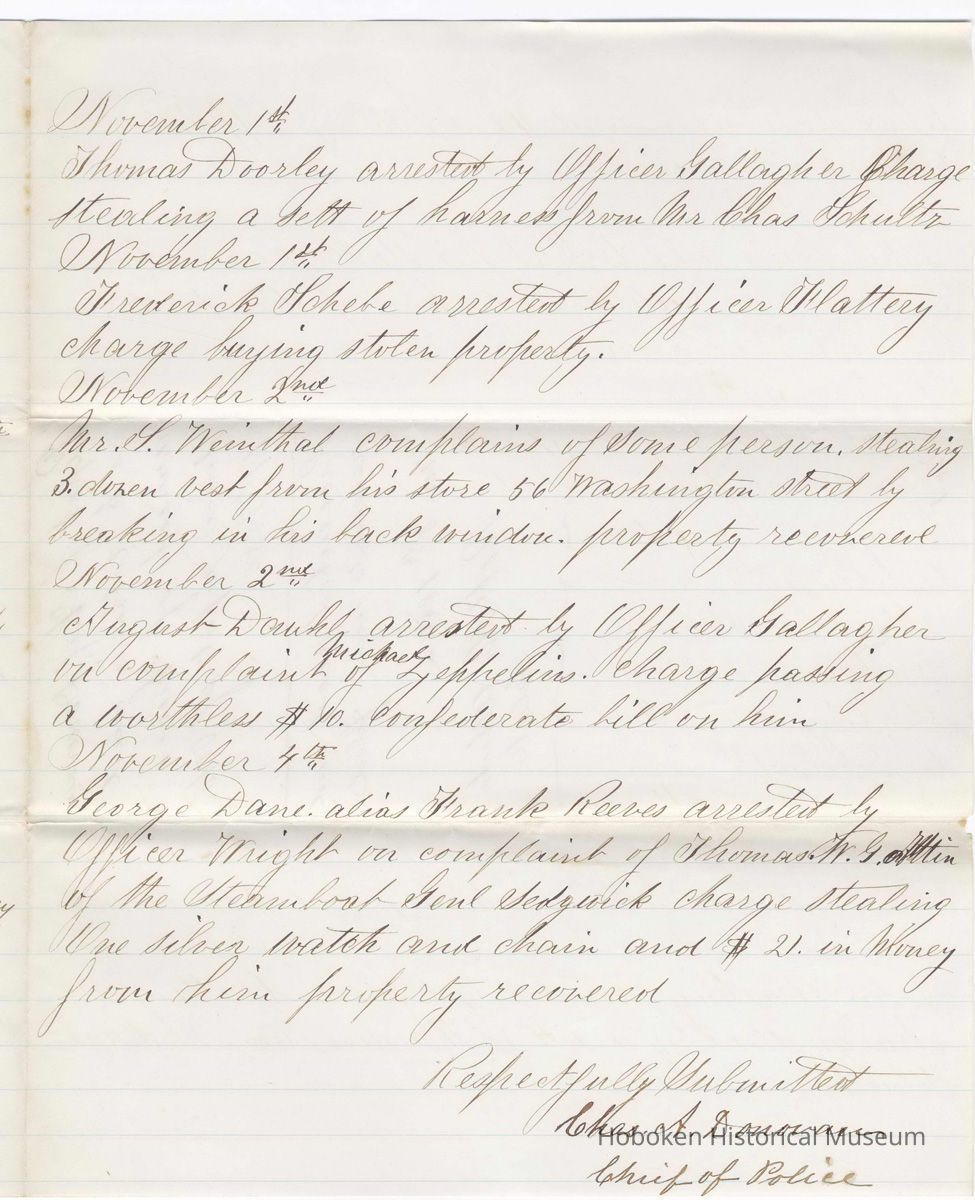 November 1st
Thomas Doorley arrested by Officer Gallagher Charge
stealing a sett of harness from Mr Chas Schultz
November 1st
Frederick Schebe arrested by Officer Flattery
charge buying stolen property.
November 2nd
Mr. S. Weinthal complains of some person. stealing
3. dozen vest from his store 56 Washington street by
breaking in his back window. property recovered
November 2nd
August Dankl arrested by Officer Gallagher
on complaint of Michael Zeppelins. charge passing
a worthless $10. Confederate bill on him
November 4th
George Dane. alias Frank Reeves arrested by
Officer Wright on complaint of Thomas. W. G.
of the Steamboat Genl Sedgwick charge stealing
One silver watch and chain and $21. in Money
from him property recovered
Respectfully Submitted
Chas A Donovan
Hoboken Historical Museum
Chief of Police